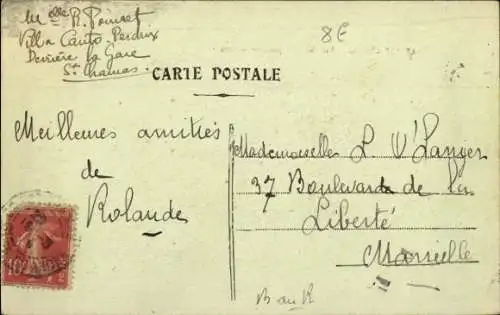 Melle R. Poinset
Villa Canto-Perdrix
Derrière la Gare
St Chamas
8E
CARTE POSTALE
Meilleures amitiés
de
Rolande
Mademoiselle L. V'Langer
37 Boulevard de la
Liberté
Marseille
10